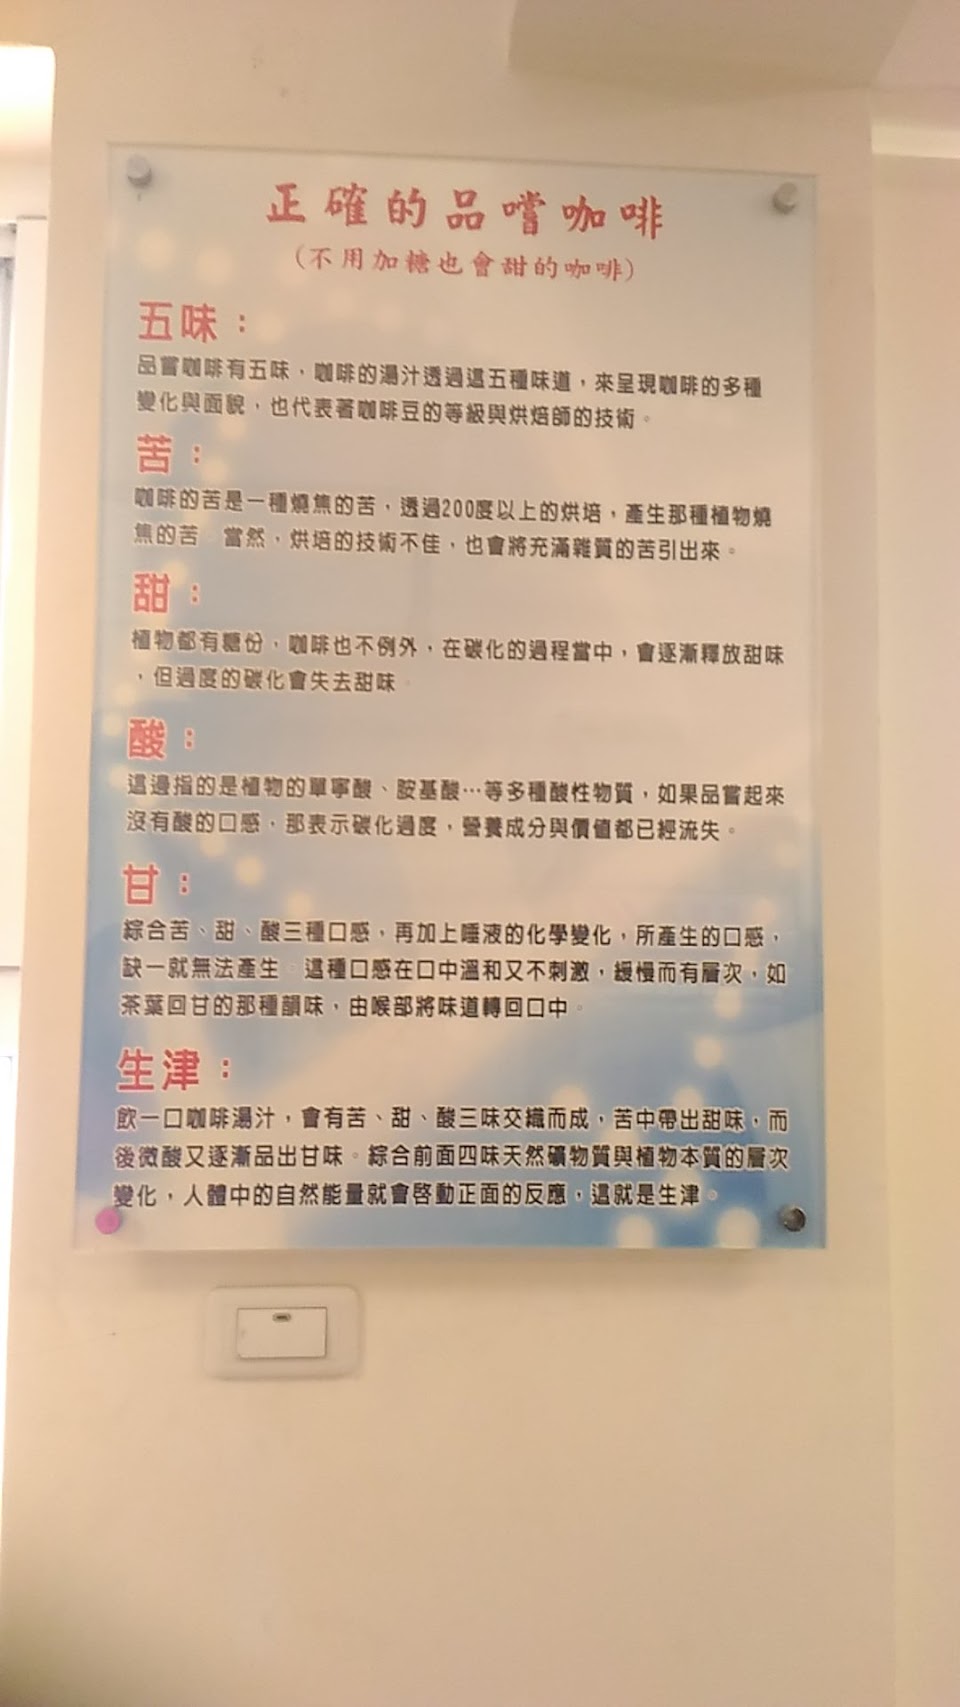 正確的品嚐咖啡
(不用加糖也會甜的咖啡)
五味：
品嘗咖啡有五味，咖啡的湯汁透過這五種味道，來呈現咖啡的多種
變化與面貌，也代表著咖啡豆的等級與烘焙師的技術。
苦：
咖啡的苦是一種燒焦的苦，透過200度以上的烘培，產生那種植物燒
焦的苦。當然，烘培的技術不佳，也會將充滿雜質的苦引出來。
甜：
植物都有糖份，咖啡也不例外，在碳化的過程當中，會逐漸釋放甜味
，但過度的碳化會失去甜味。
酸：
這邊指的是植物的單寧酸、胺基酸…等多種酸性物質，如果品嘗起來
沒有酸的口感，那表示碳化過度，營養成分與價值都已經流失。
甘：
綜合苦、甜、酸三種口感，再加上唾液的化學變化，所產生的口感，
缺一就無法產生。這種口感在口中溫和又不刺激，緩慢而有層次，如
茶葉回甘的那種韻味，由喉部將味道轉回口中。
生津：
飲一口咖啡湯汁，會有苦、甜、酸三味交織而成，苦中帶出甜味，而
後微酸又逐漸品出甘味。綜合前面四味天然礦物質與植物本質的層次
變化，人體中的自然能量就會啓動正面的反應，這就是生津。